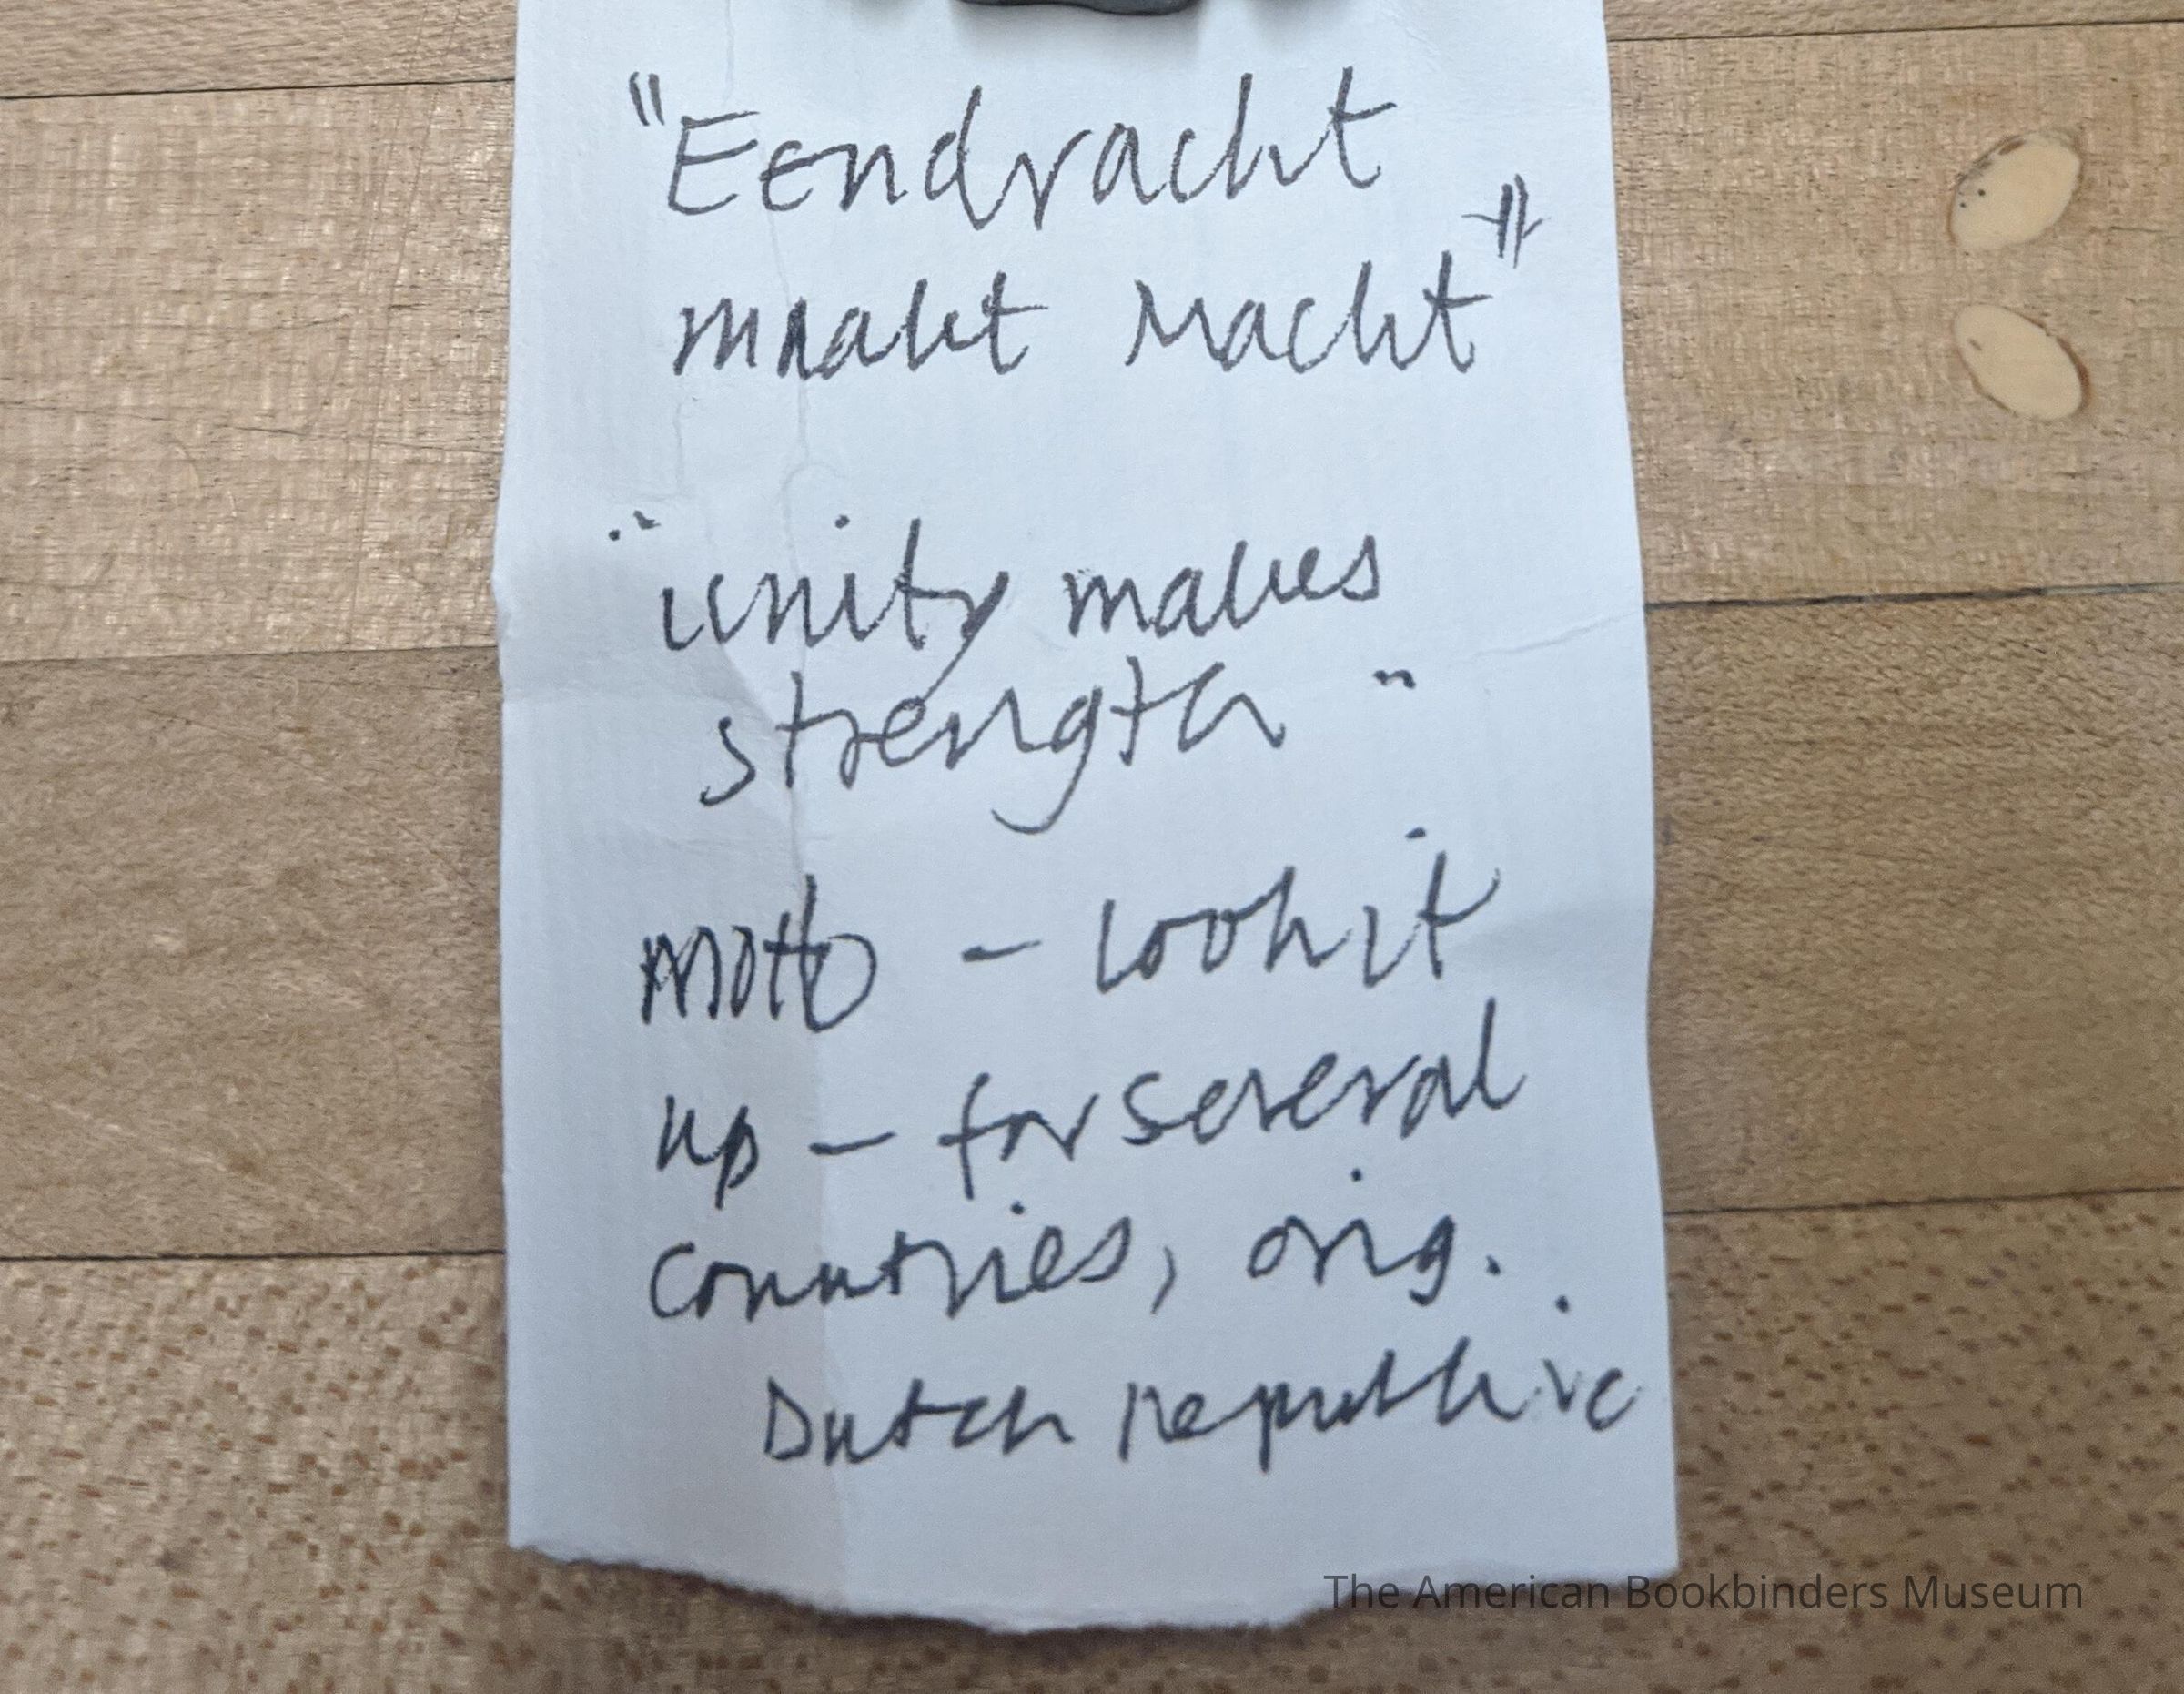 "Eendracht
maakt macht"
"unity makes
strength"
motto - look it
up - for several
countries, orig.
Dutch Republic
The American Bookbinders Museum